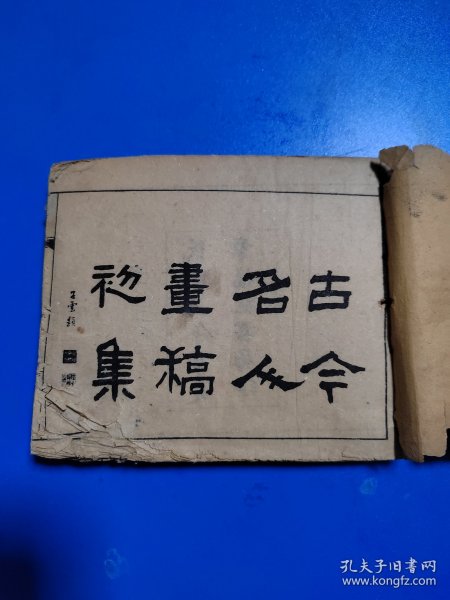 古今
名人
畫稿
初集
王雲題
孔夫子旧书网
www.kongfz.com